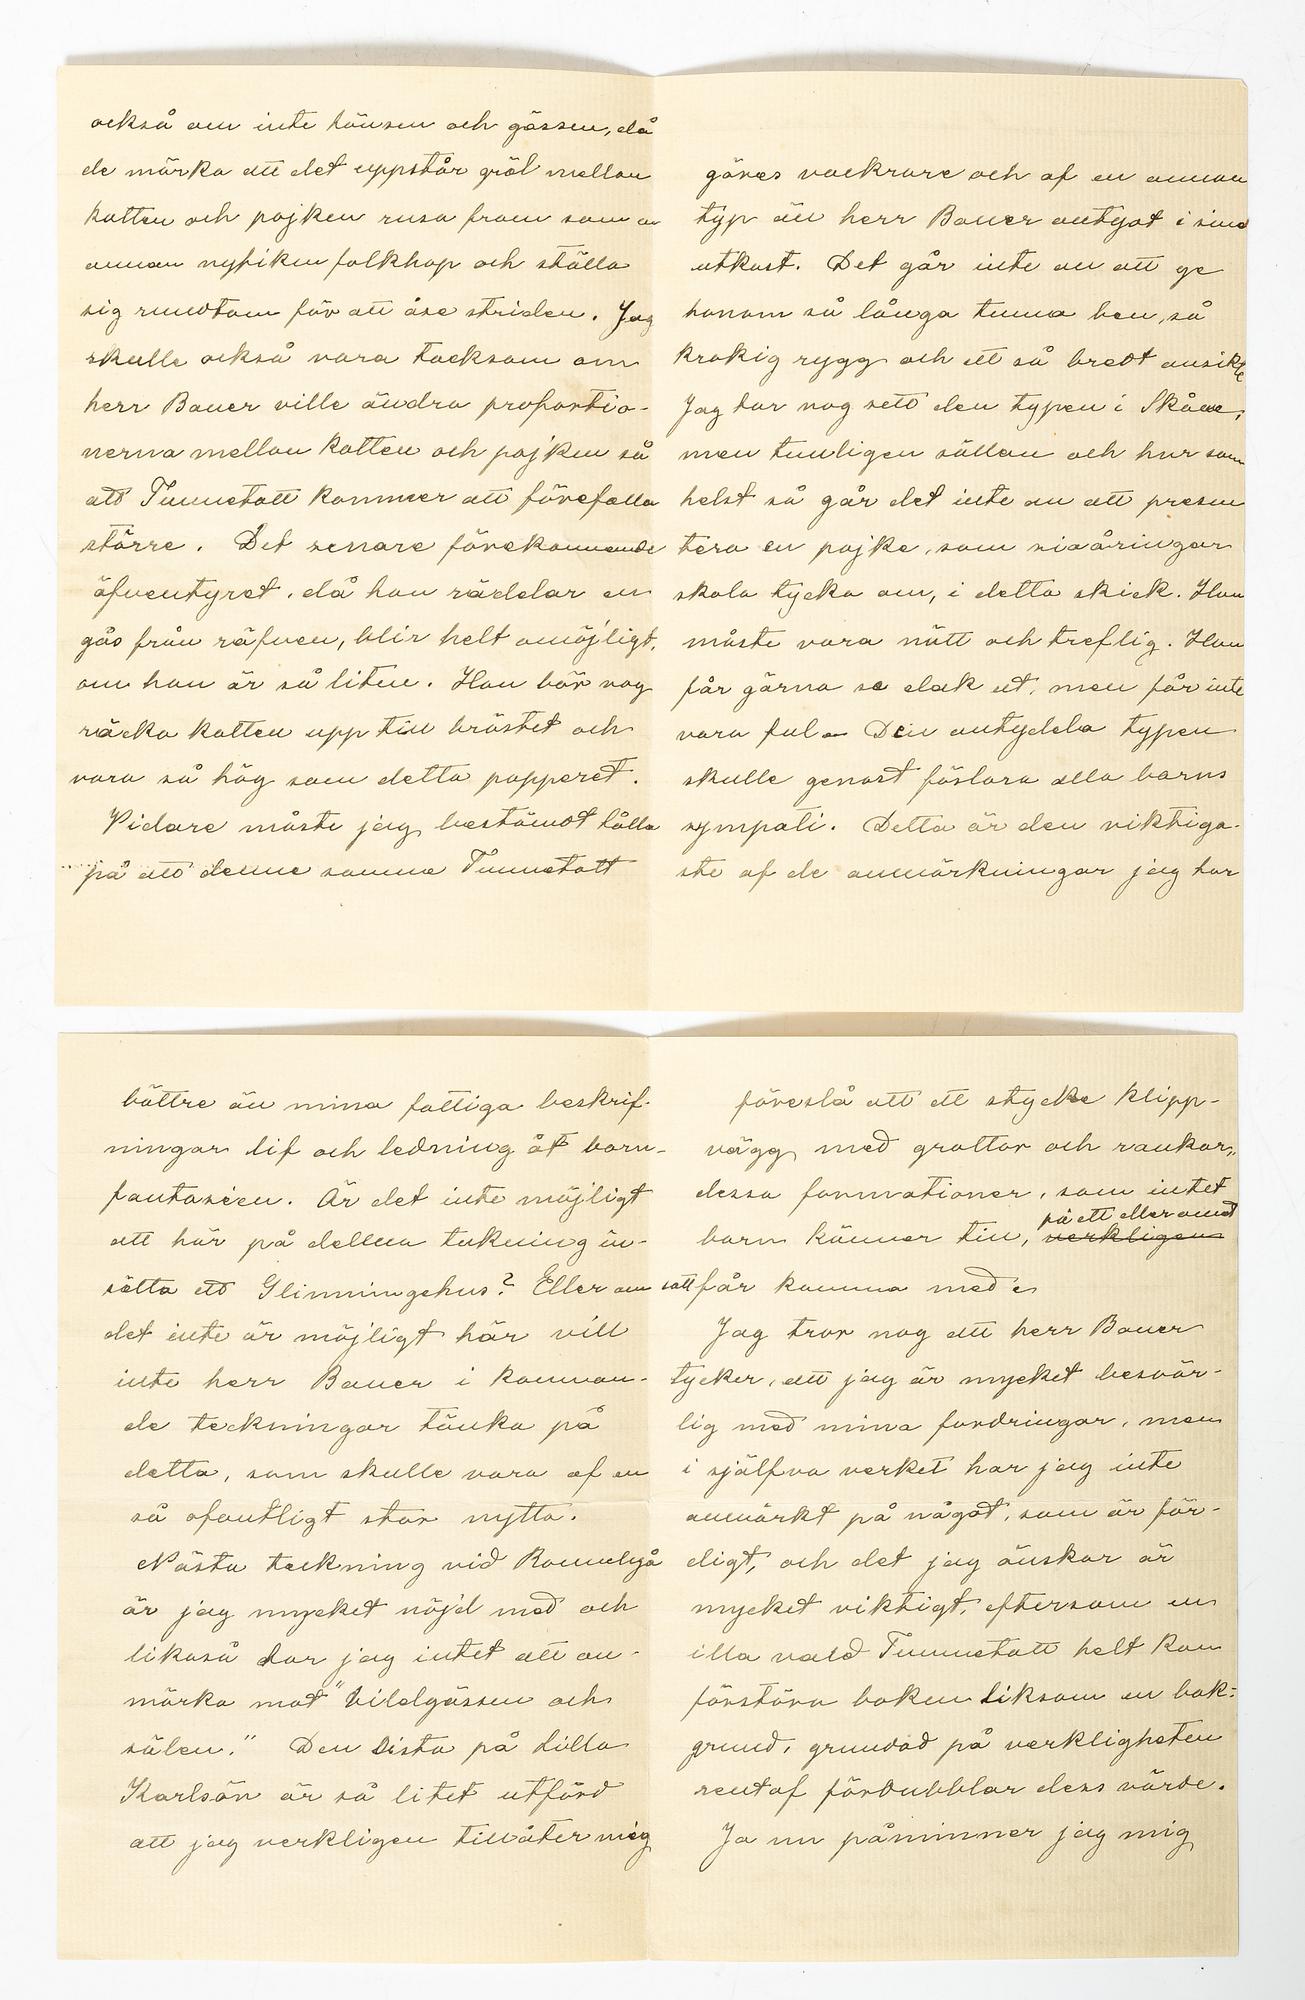 också om inte hönsen och gässen, då
de märka att det uppstår gräl mellan
katten och pojken rusa fram som en
annan nyfiken folkhop och ställa
sig rundtom för att åse striden. Jag
skulle också vara tacksam om
herr Bauer ville ändra proportio-
nerna mellan katten och pojken så
att Tummetott kommer att förefalla
större. Det senare förekommande
äfventyret, då han räddar en
gås från räfven, blir helt omöjligt,
om han är så liten. Han bör nog
räcka katten upp till bröstet och
vara så hög som detta papperet.
Vidare måste jag bestämdt hålla
på att denne samme Tummetott
göres vackrare och af en annan
typ än herr Bauer antydt i sina
utkast. Det går inte an att ge
honom så långa tunna ben, så
krokig rygg och ett så bredt ansikte
Jag har nog sett den typen i Skåne,
men temligen sällan och hur som
helst så går det inte an att presen
tera en pojke, som nioåringar
skola tycka om, i detta skick. Han
måste vara nätt och treflig. Han
får gärna se elak ut, men får inte
vara ful – Den antydda typen
skulle genast förlora alla barns
sympati. Detta är den viktiga-
ste af de anmärkningar jag har
bättre än mina fattiga beskrif-
ningar lif och ledning åt barn-
fantasien. Är det inte möjligt
att här på denna teckning in-
sätta ett Glimmingehus? Eller om
det inte är möjligt här vill
inte herr Bauer i komman-
de teckningar tänka på
detta, som skulle vara af en
så ofantligt stor nytta.
Nästa teckning vid Ronneby å
är jag mycket nöjd med och
likaså har jag intet att an-
märka mot "Vildgässen och
sälen." Den sista på Lilla
Karlsön är så litet utförd
att jag verkligen tillåter mig
föreslå att ett stycke klipp-
vägg med grottor och raukar,
dessa formationer, som intet
på ett eller annat
barn känner till, verkligen
sätt får komma med
Jag tror nog att herr Bauer
tycker, att jag är mycket besvär-
lig med mina fordringar, men
i själfva verket har jag inte
anmärkt på något, som är fär-
digt, och det jag önskar är
mycket viktigt, eftersom en
illa vald Tummetott helt kan
förstöra boken liksom en bak-
grund, grundad på verkligheten
rentaf fördubblar dess värde.
Ja nu påminner jag mig